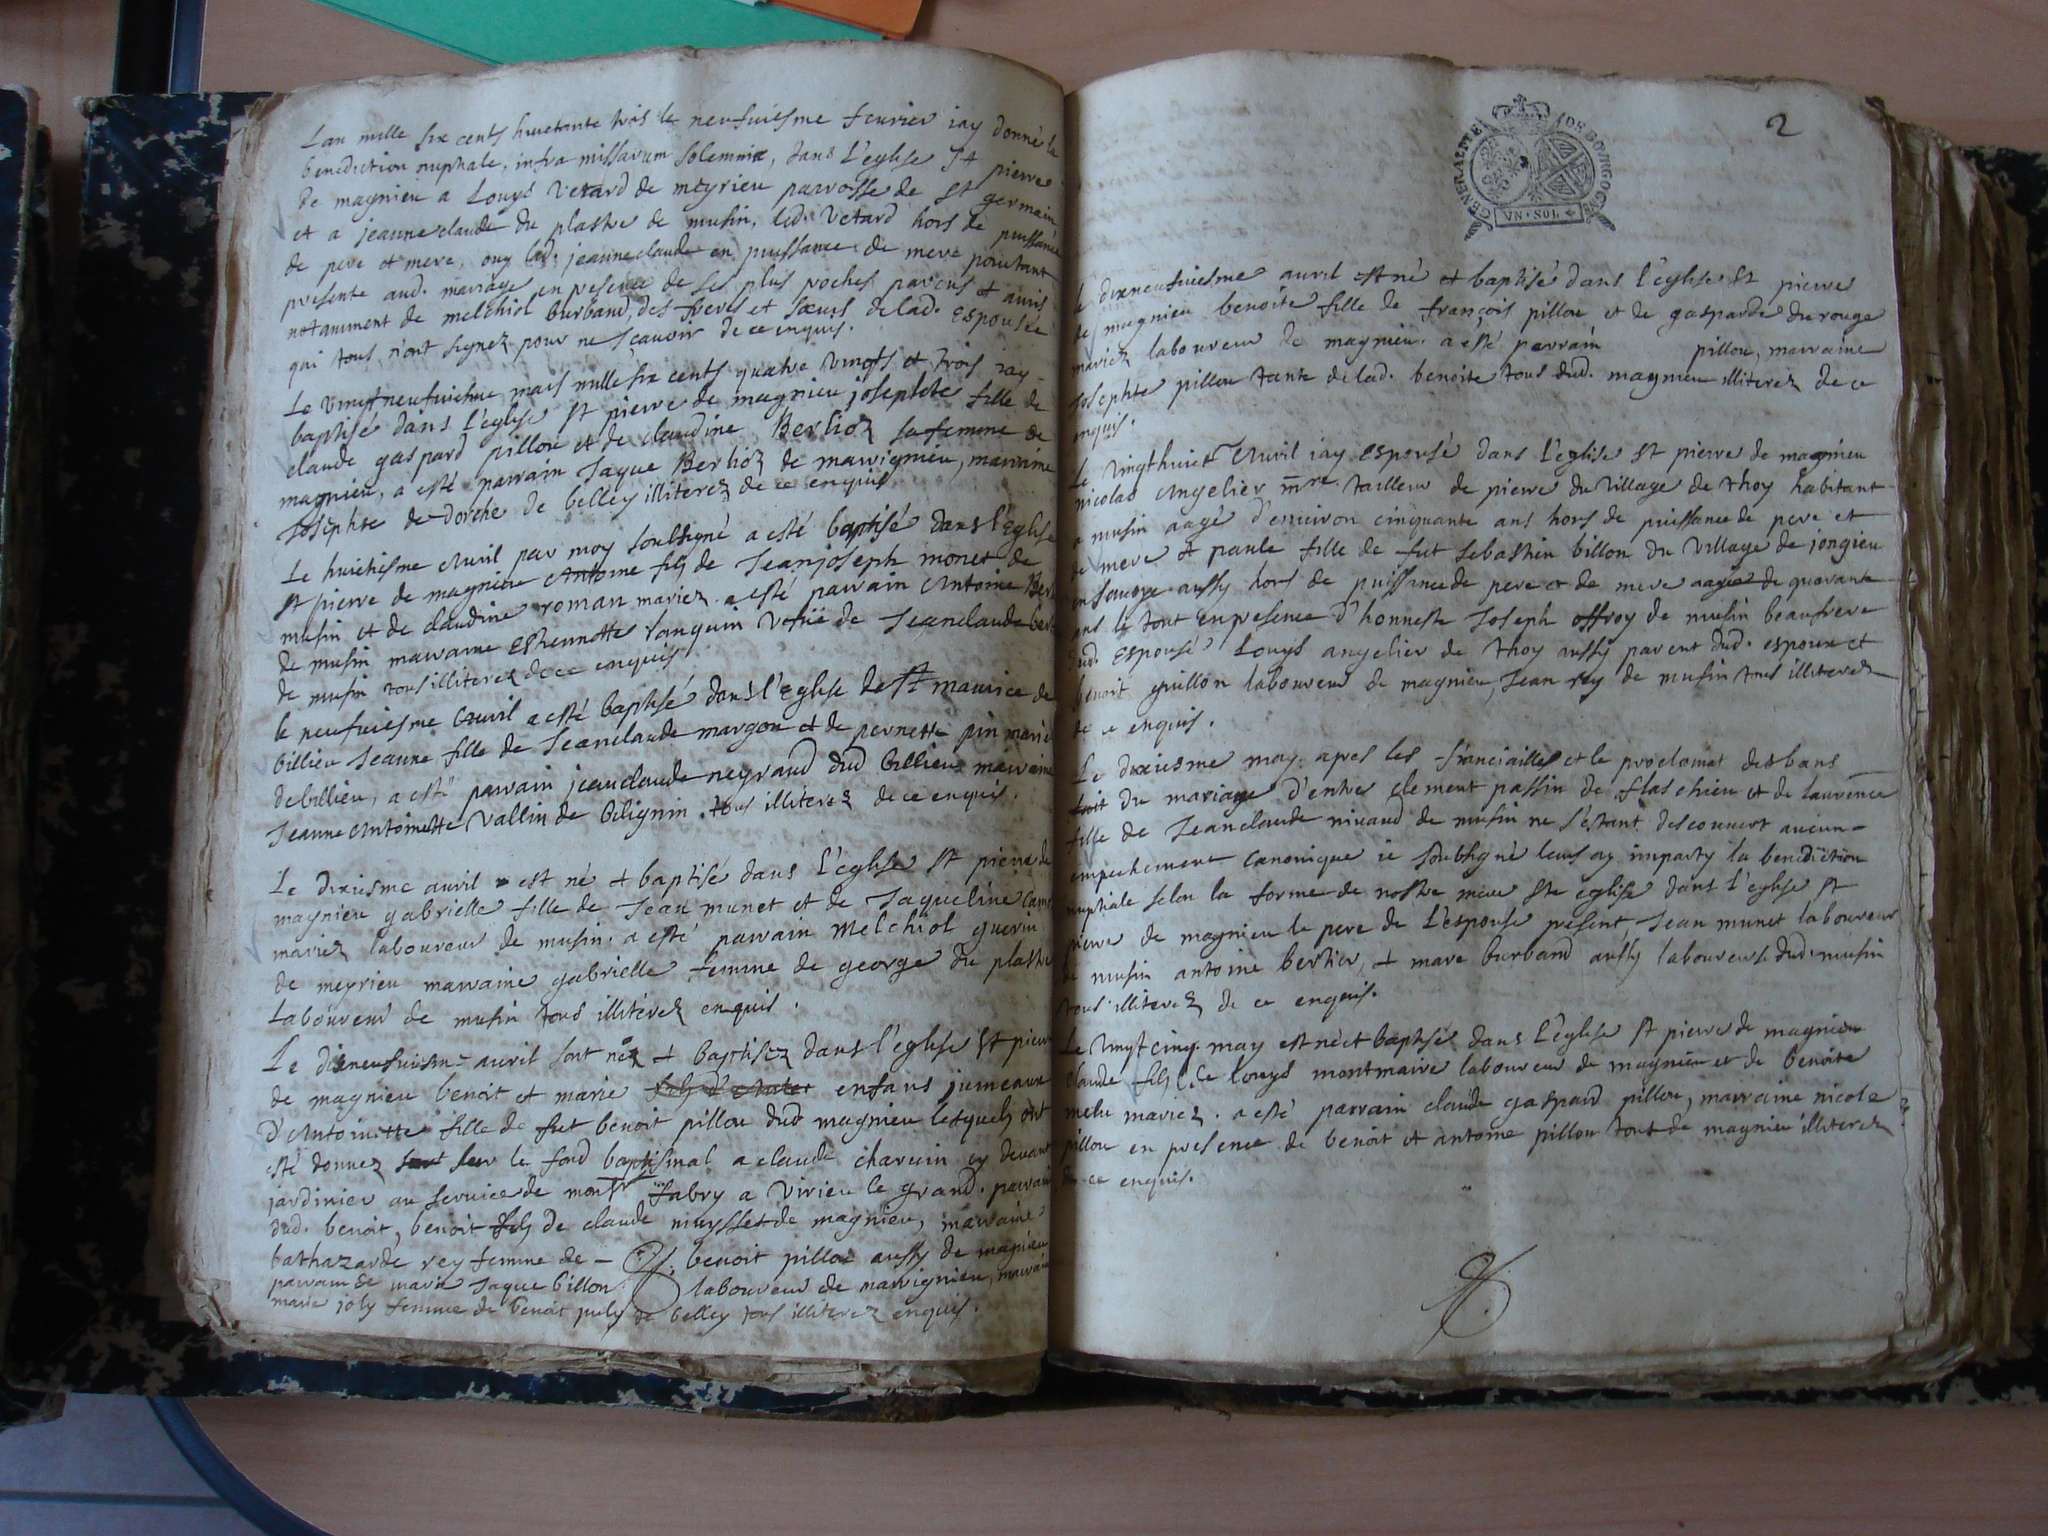 Lan mille six cents huictante trois le neufuiesme feurier iay donné la
benediction nuptiale, infra missarum solemnia, dans L'eglise St pierre
de magnieu a Louys Vetard de meyrieu parroisse de St germain
et a jeanne claude du plastre de musin, led. Vetard hors de puissance
de pere et mere, ouy lad. jeanneclaude en puissance de mere pourtant
presente aud. mariage en presence de ses plus proches parens et amis
notamment de melchiol burband, des freres et sœurs de lad. espousée
qui tous n'ont signez pour ne sçauoir de ce enquis.
Le vingtneufuiesme mars mille six cents quatre vingts et trois iay
baptisé dans l'eglise St pierre de magnieu josephte fille de
claude gaspard pillou et de claudine Berlioz sa femme de
magnieu, a esté parrain Jaque Berlioz de marrignieu, marraine
Josephte de Dorche de belley illiterez de ce enquis
Le huictiesme Auril par moy soubsigné a esté baptisé dans l'Eglise
St pierre de magnieu Antoine fils de Jeanjoseph monet de
musin et de claudine roman mariez. a esté parrain Antoine Bert
de musin marraine Estiennette Vefue de Jeanclaude bert
de musin tous illiterez de ce enquis
le neufuiesme Auril a esté baptisé dans l'Eglise de St maurice de
billieu Jeanne fille de Jeanclaude margon et de pernette pin mariez
de billieu, a esté parrain jeanclaude neyraud dud billieu marraine
Jeanne Antoinette Vallin de Bilignin. tous illiterez de ce enquis.
Le dixiesme auril est né et baptisé dans l'eglise St pierre de
magnieu gabrielle fille de Jean munet et de Jaqueline Cam
mariez laboureur de musin. a esté parrain Melchiol guerin
de meyrieu marraine gabrielle femme de george du plastre
Laboureur de musin tous illiterez enquis.
Le dixneufuiesme auril sont nez et baptisez dans l'eglise St pierre
de magnieu benoit et marie enfans jumeaux
d'Antoinette fille de fut benoit pillou dud magnieu lesquels ont
esté donnez sur le fond baptismal a claude charuin cy deuant
jardinier au seruice de monsr fabry a Virieu le grand. parrain
dud. benoit, benoit fils de claude de magnieu, marraine
bathazarde rey femme de - benoit pillou aussy de magnieu
parrain de marie Jaque billon laboureur de marrignieu, marraine
marie joly femme de benoit de belley tous illiterez enquis.
2
GENERALITE DE BOURGOGNE
VN·SOL
Le dixneufuiesme auril est né et baptisé dans l'eglise St pierre
de magnieu benoite fille de françois pillou et de gasparde durouge
mariez laboureur de magnieu. a esté parrain pillou, marraine
Josephte pillou tante de lad. benoite tous dud. magnieu illiterez de ce
enquis.
Le Vingthuict Auril iay espousé dans l'eglise St pierre de magnieu
nicolas Angelier mre tailleur de pierre du Village de thoy habitant
a musin aagé d'enuiron cinquante ans hors de puissance de pere et
de mere et paule fille de fut sebastien billon du Village de jongieu
en sauoye aussy hors de puissance de pere et de mere aagée de quarante
ans le tout en presence d'honneste Joseph offroy de musin beaufrere
dud. Espousé, Louys angelier de thoy aussy parent dud. espoux et
benoit guillon laboureur de magnieu, Jean rey de musin tous illiterez
de ce enquis.
Le dixiesme may apres les fianciailles et le proclomat des bans
fait du mariage d'entre clement passin de flaschieu et de laurence
fille de Jeanclaude niuaud de musin ne s'estant descouuert aucun
empechement canonique ie soubsigné leurs ay imparty la benediction
nuptiale selon la forme de nostre mere Ste eglise dans l'eglise St
pierre de magnieu le pere de l'espouse present, Jean munet laboureur
de musin antoine bertier, et marc burband aussy laboureurs dud. musin
tous illiterez de ce enquis.
Le Vingtcinq may est né et baptisé dans l'eglise St pierre de magnieu
claude fils de louys montmaire laboureur de magnieu et de benoite
melu mariez. a esté parrain claude gaspard pillou, marraine nicole
pillou en presence de benoit et antoine pillou tous de magnieu illiterez
de ce enquis.